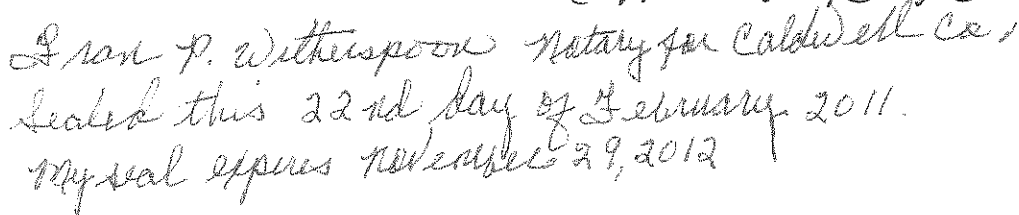 Fran P. Witherspoon Notary for Caldwell Co,
Sealed this 22nd day of February 2011.
My seal expires November 29, 2012